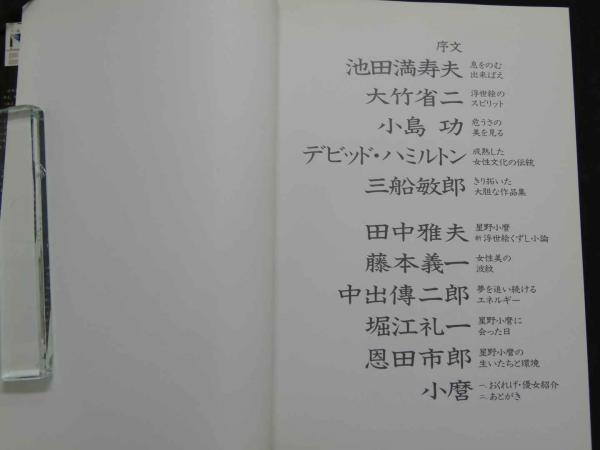 序文
池田満寿夫 息をのむ
出来ばえ
大竹省二 浮世絵の
スピリット
小島 功 危うさの
美を見る
デビッド・ハミルトン 成熟した
女性文化の伝統
三船敏郎 きり拓いた
大胆な作品集
田中雅夫 星野小麿
新浮世絵くずし小論
藤本義一 女性美の
波紋
中出傳二郎 夢を追い続ける
エネルギー
堀江礼一 星野小麿に
会った日
恩田市郎 星野小麿の
生いたちと環境
小麿 一、おくれげ・優女紹介
二、あとがき